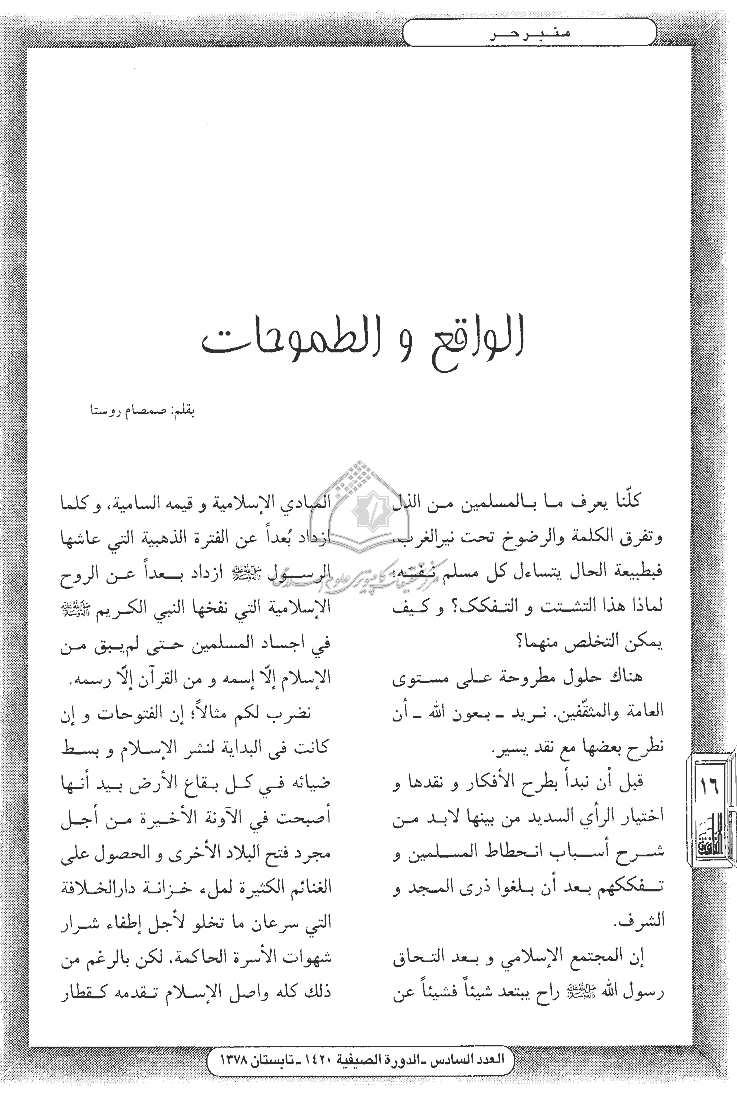 منبر حر
الواقع و الطموحات
بقلم: صمصام روستا
كلّنا يعرف ما بالمسلمين من الذل
وتفرق الكلمة والرضوخ تحت نيرالغرب.
فبطبيعة الحال يتساءل كل مسلم نفسه؛
لماذا هذا التشتت و التفكك؟ و كيف
يمكن التخلص منهما؟
هناك حلول مطروحة على مستوى
العامة والمثقّفين. نريد ـ بعون الله ـ أن
نطرح بعضها مع نقد يسير.
قبل أن نبدأ بطرح الأفكار و نقدها و
اختيار الرأي السديد من بينها لابد من
شرح أسباب انحطاط المسلمين و
تفككهم بعد أن بلغوا ذرى المجد و
الشرف.
إن المجتمع الإسلامي و بعد التحاق
رسول الله ﷺ راح يبتعد شيئاً فشيئاً عن
المبادي الإسلامية و قيمه السامية، و كلما
ازداد بُعداً عن الفترة الذهبية التي عاشها
الرسول ﷺ ازداد بعداً عن الروح
الإسلامية التي نفخها النبي الكريم ﷺ
في اجساد المسلمين حتى لم‌يبق من
الإسلام إلّا إسمه و من القرآن إلّا رسمه.
نضرب لكم مثالاً؛ إن الفتوحات و إن
كانت فى البداية لنشر الإسلام و بسط
ضيائه في كل بقاع الأرض بيد أنها
أصبحت في الآونة الأخيرة من أجل
مجرد فتح البلاد الأخرى و الحصول على
الغنائم الكثيرة لملء خزانة دارالخلافة
التي سرعان ما تخلو لأجل إطفاء شرار
شهوات الأسرة الحاكمة. لكن بالرغم من
ذلك كله واصل الإسلام تقدمه كقطار
١٦
العدد السادس ـ الدورة الصيفية ١٤٢٠ ـ تابستان ١٣٧٨